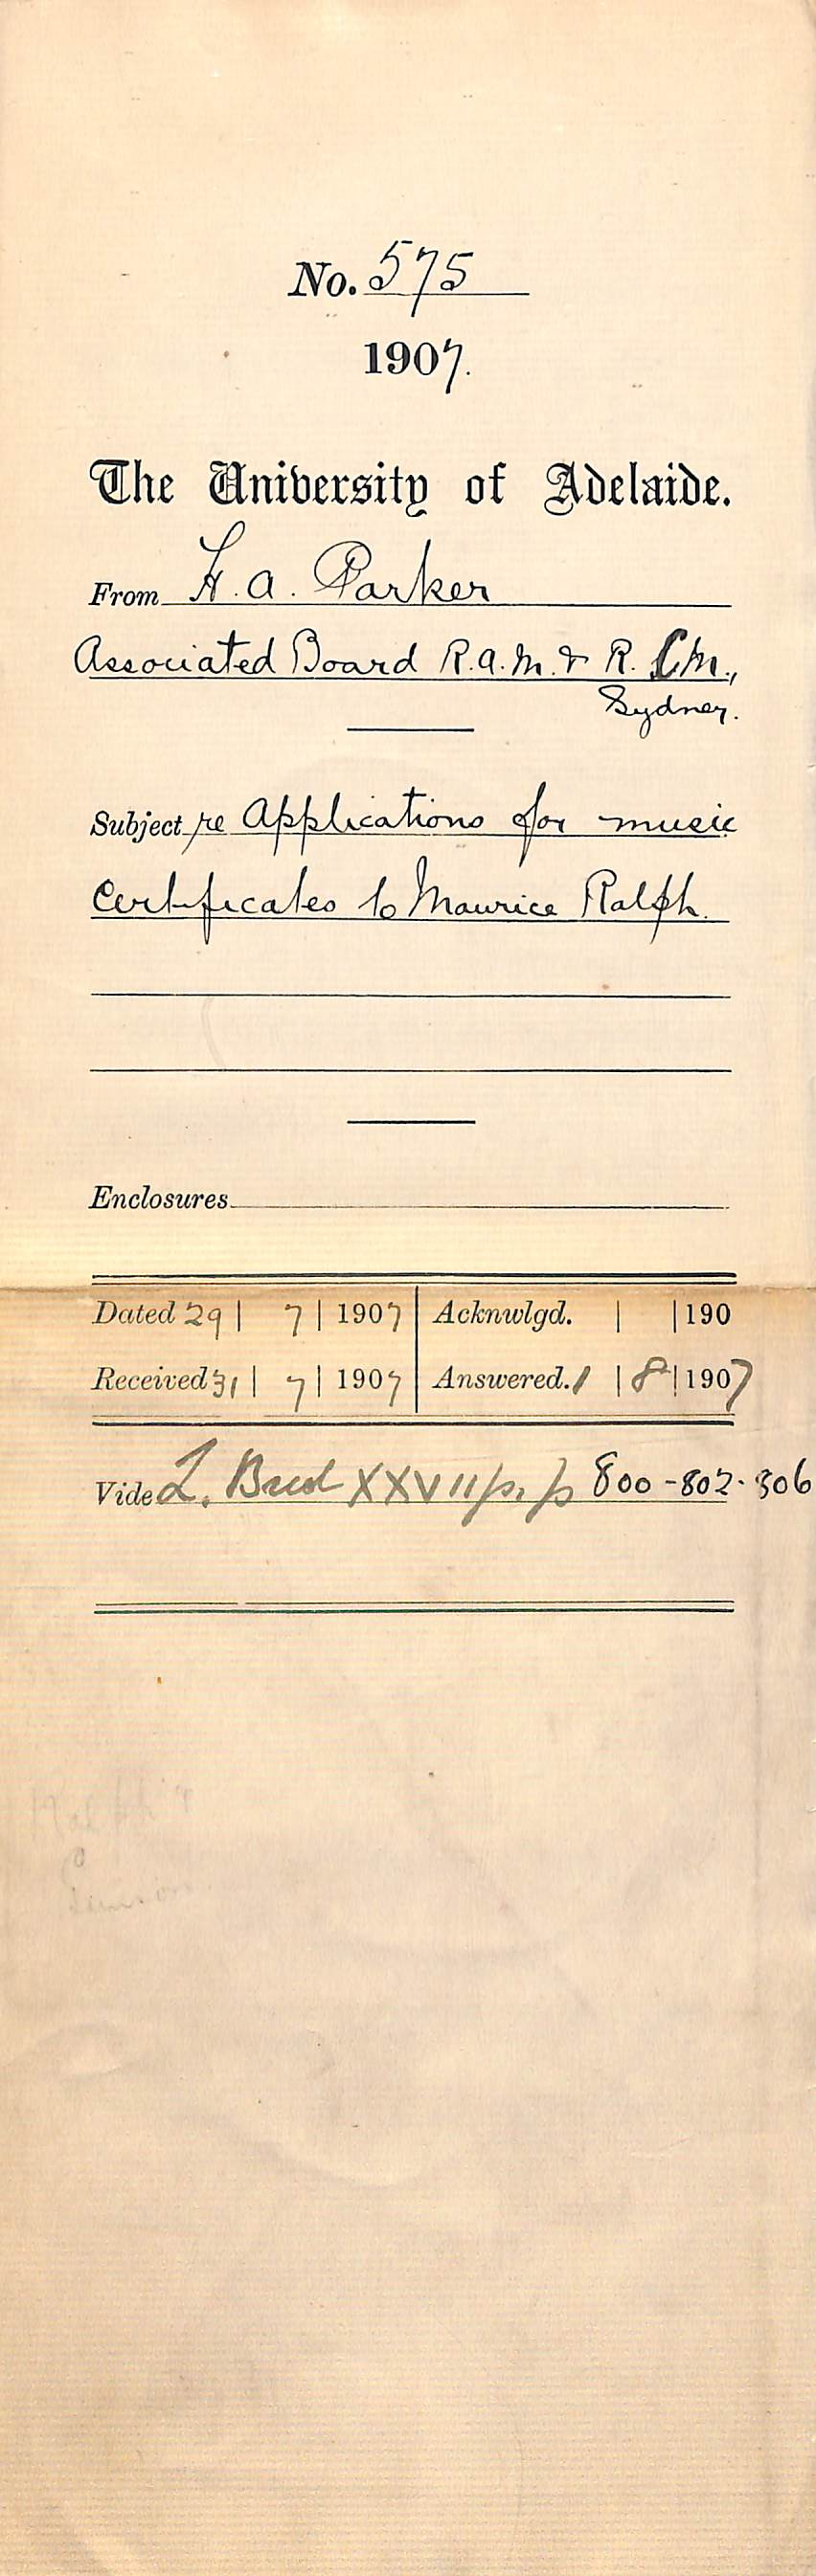 No. 575
1907.
The University of Adelaide.
From H. A. Parker
Associated Board R.A.M. & R.C.M.,
Sydney.
Subject re Applications for music
Certificates to Maurice Ralph.
Enclosures
Dated 29 | 7 | 1907 | Acknwlgd. | | 190
Received 31 | 7 | 1907 | Answered. 1 | 8 | 1907
Vide L. XXVII p. 800-802. 306